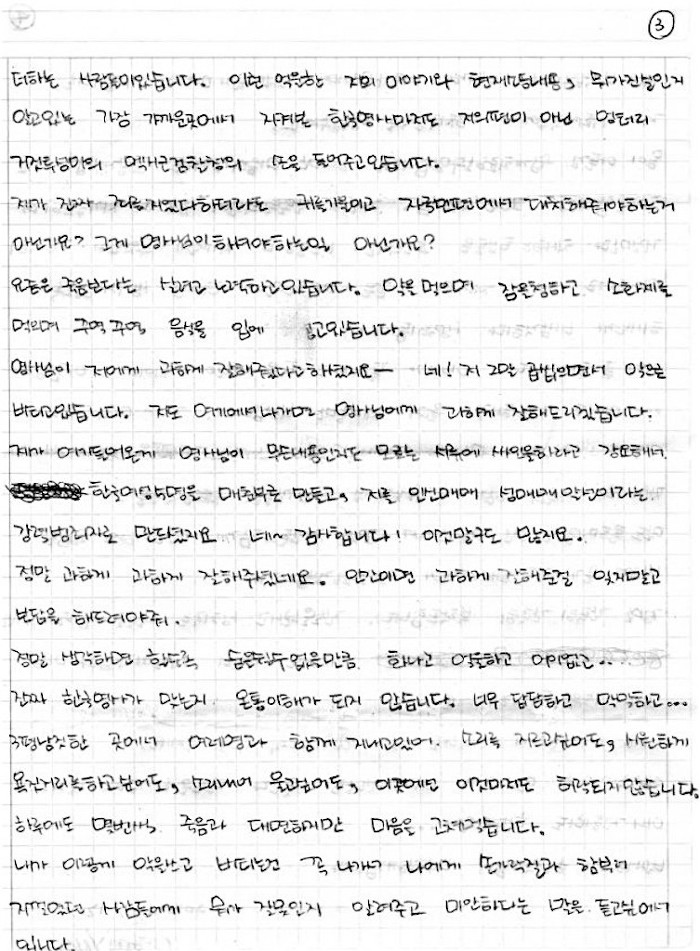 ③
더하는 사람들이있습니다. 이런 억울한 저의 이야기와 현재상황내용, 뭐가진실인지
알고있는 가장 가까운곳에서 지켜본 한국영사마저도 저의편이 아닌 엉터리
거짓투성이의 멕시코검찰청의 손을 들어주고있습니다.
제가 진짜 죄를지었다하더라도 귀를기울이고 자국민편에서 대처해줘야하는거
아닌가요? 그게 영사님이해야하는일 아닌가요?
요즘은 죽음보다는 살려고 노력하고있습니다. 약을먹으며 잠을청하고 소화제를
먹으며 꾸역꾸역 음식을 입에 넣고있습니다.
영사님이 저에게 과하게 잘해주었다고하셨지요— 네! 저 그말 곱씹으면서 악으로
버티고있습니다. 저도 여기에서나가면 영사님에게 과하게 잘해드리겠습니다.
제가 여기들어온게 영사님이 무슨내용인지도 모르는 서류에 싸인을하라고 강요해서.
한국여성 명을 매춘부로 만들고, 저를 인신매매 성매매 악년이라는
강력범죄자로 만드셨지요 네~ 감사합니다! 이것말구도 많지요.
정말 과하게 과하게 잘해주셨네요. 인간이면 과하게 잘해준걸 잊지말고
보답을 해드려야죠.
정말 생각하면 할수록 숨을쉴수없을만큼 화나고 억울하고 어이없고...
진짜 한국영사가 맞는지 온통이해가 되지 않습니다. 너무 답답하고 막막하고...
3평남짓한 곳에서 여러명과 함께 지내고있어. 소리를 지르고싶어도, 시원하게
욕짓거리를하고싶어도, 소리내어 울고싶어도, 이곳에선 이것마저도 허락되지않습니다.
하루에도 몇번씩, 죽음과 대면하지만 마음을 고쳐먹습니다.
내가 이렇게 악을쓰고 버티는건 꼭 나가서 나에게 손가락질과 함부러
지껄였던 사람들에게 무가 잘못인지 알려주고 미안하다는 말은 듣고싶어서
입니다.